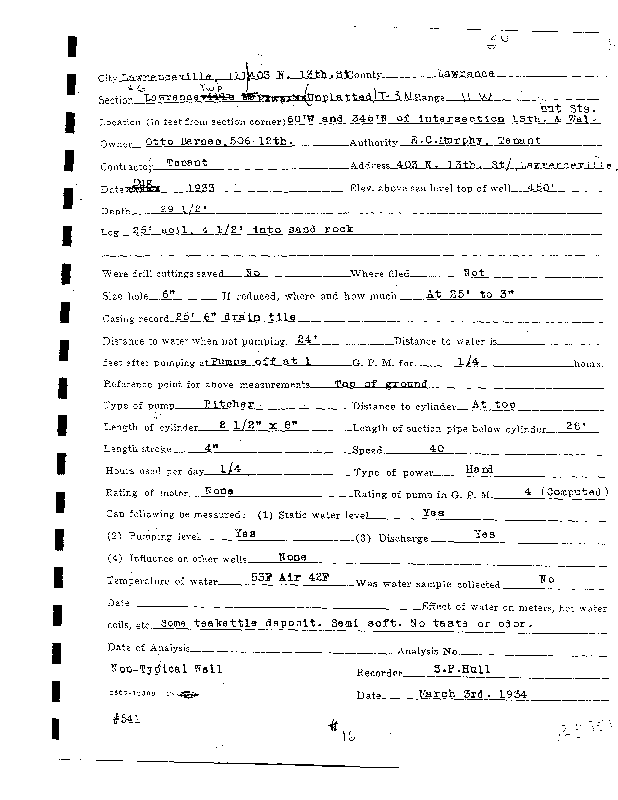 City Lawrenceville, Ill 403 N. 13th. St County Lawrence
Twp
Section Lawrenceville (Unplatted) T-3 N Range 11 W
nut Sts.
Location (in feet from section corner) 60'W and 346'N of intersection 15th. & Wal-
Owner Otto Barnes, 506-12th. Authority R.C.Murphy, Tenant
Contractor Tenant Address 403 N. 13th. St/ Lawrenceville,
Date Dug 1933 Elev. above sea level top of well 460'
Depth 29 1/2'
Log 25' soil, 4 1/2' into sand rock
Were drill cuttings saved No Where filed Not
Size hole 6" If reduced, where and how much At 25' to 3"
Casing record 25' 6" drain tile
Distance to water when not pumping 24' Distance to water is
feet after pumping at Pumps off at 1 G. P. M. for 1/4 hours.
Reference point for above measurements Top of ground
Type of pump Pitcher Distance to cylinder At top
Length of cylinder 2 1/2" x 8" Length of suction pipe below cylinder 26'
Length stroke 4" Speed 40
Hours used per day 1/4 Type of power Hand
Rating of motor None Rating of pump in G. P. M. 4 (Computed)
Can following be measured: (1) Static water level Yes
(2) Pumping level Yes (3) Discharge Yes
(4) Influence on other wells None
Temperature of water 53F Air 42F Was water sample collected No
Date Effect of water on meters, hot water
coils, etc. Some teakettle deposit. Semi soft. No taste or odor.
Date of Analysis Analysis No.
Non-Typical Well Recorder S.P.Hull
Date March 3rd. 1934
#541
# 16